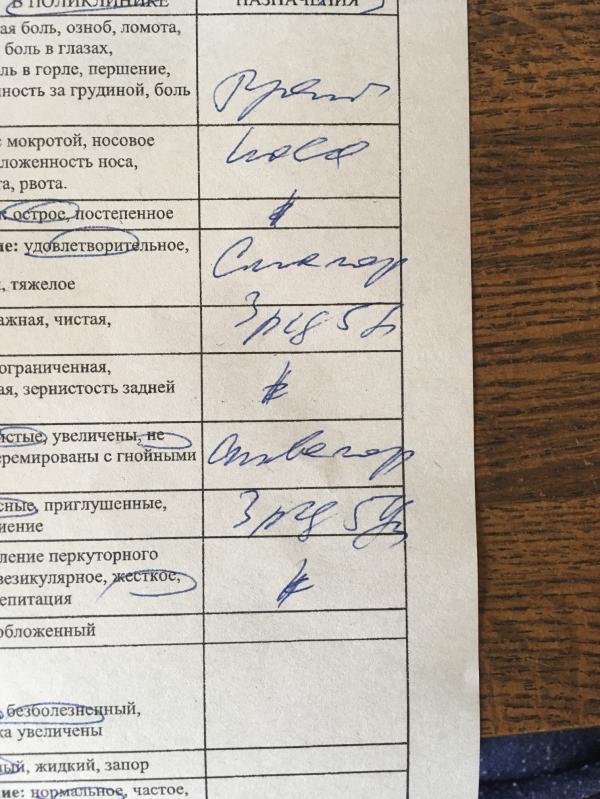 В ПОЛИКЛИНИКЕ НАЗНАЧЕНИЯ
ая боль, озноб, ломота,
боль в глазах,
ль в горле, першение,
нность за грудиной, боль
с мокротой, носовое
ложенность носа,
та, рвота.
острое, постепенное
ие: удовлетворительное,
, тяжелое
3 р/д 5 д
ажная, чистая,
ограниченная,
ая, зернистость задней
истые, увеличены, не
еремированы с гнойными
3 р/д 5 д
сные, приглушенные,
иение
ление перкуторного
везикулярное, жесткое,
епитация
обложенный
, безболезненный,
ка увеличены
ный, жидкий, запор
ние: нормальное, частое,